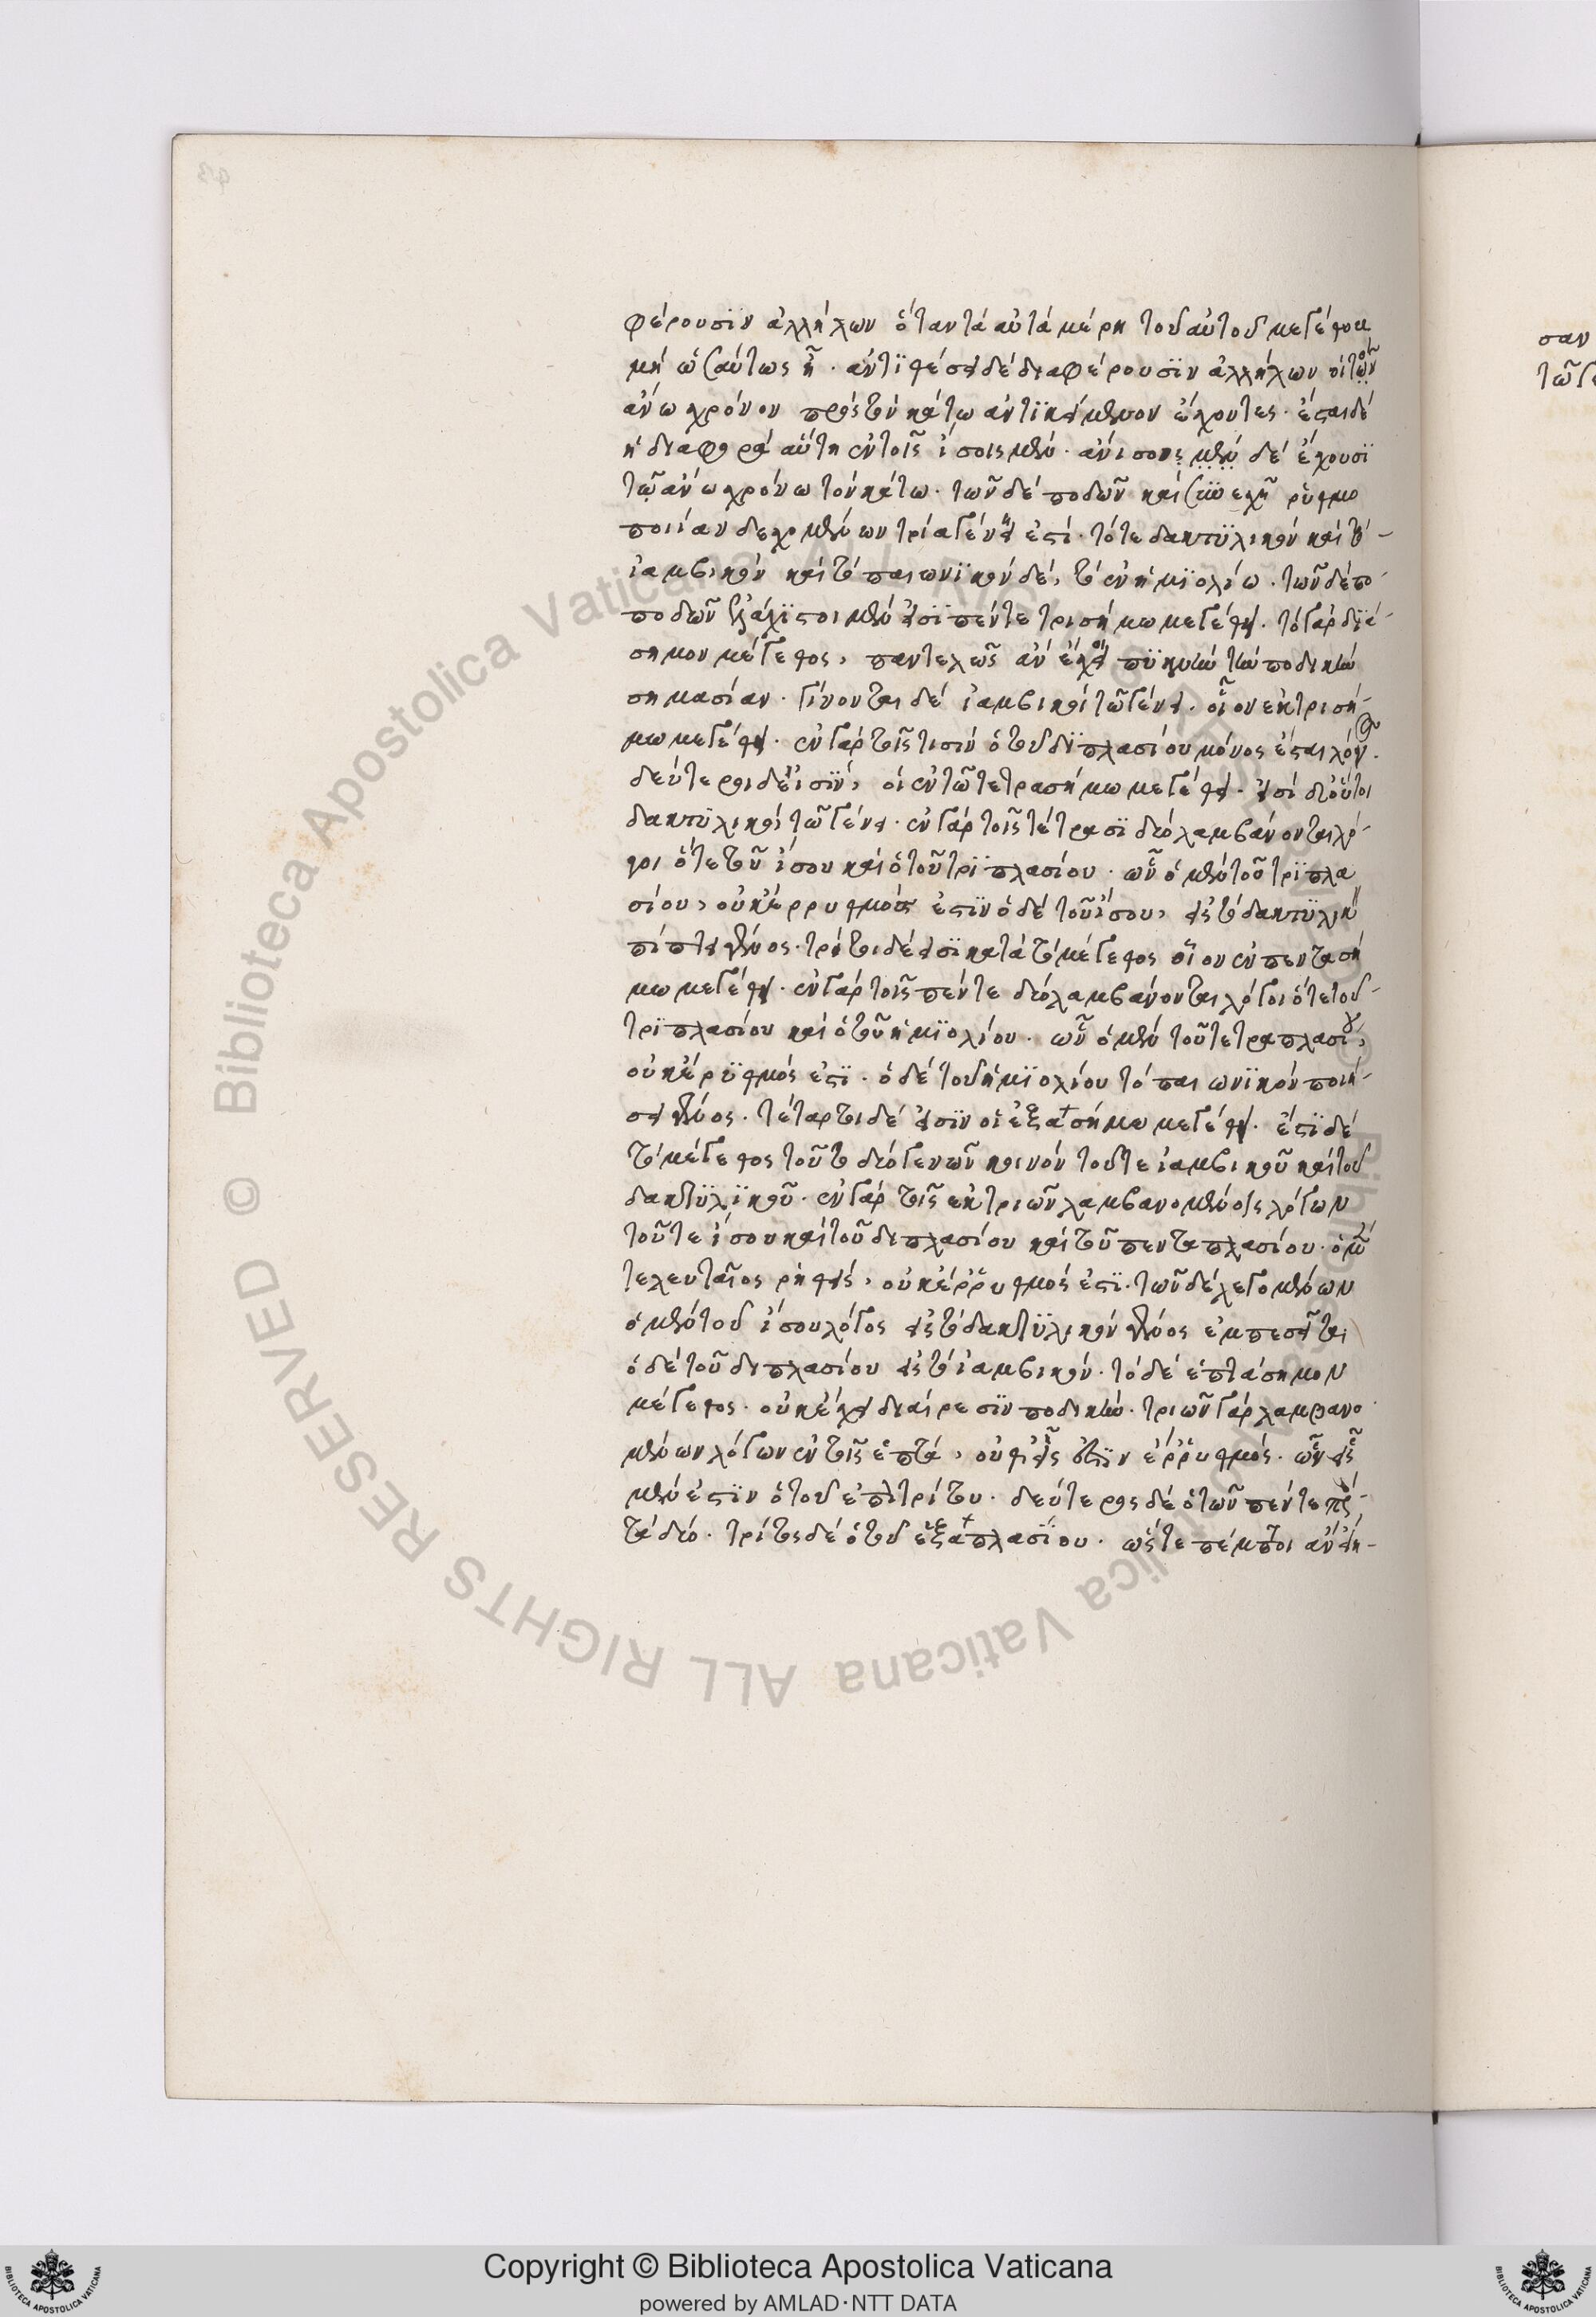 φέρουσϊν ἀλλήλων ὅταν τὰ αὐτὰ μέρη τοῦ αὐτοῦ μεγέθους
μὴ ὡσαύτως ᾖ. ἀντϊθέσει δὲ διαφέρουσϊν ἀλλήλων οἱ τὸν
ἄνω χρόνον πρὸς τὸν κάτω ἀντϊκείμενον ἔχοντες. ἔσται δὲ
ἡ διαφορὰ αὕτη ἐν τοῖς ἴσοις μὲν. ἄνισον μὲν δὲ ἔχουσϊ
τῷ ἄνω χρόνω τὸν κάτω. τῶν δὲ ποδῶν καὶ συνεχῆ ῥυθμο
ποιίαν δεχομένων τρία γένη ἐστί. τό τε δακτϋλικὸν καὶ τὸ
ἰαμβικὸν καὶ τὸ παιωνϊκὸν δὲ, τὸ ἐν ἡμϊολίω. τῶν δὲ πο
ποδῶν ἐλάχϊστοι μὲν εἰσϊ πέντε τρισήμω μεγέθει. τὸ γὰρ δϊά
σημον μέγεθος, παντελῶς ἂν ἔχοι πϋκνὴν τὴν ποδικὴν
σημασίαν. γίνονται δὲ ἰαμβικοὶ τῶ γένει. οἷον ἐκ τρισή
μω μεγέθει. ἐν γὰρ τοῖς τισὶν ὁ τοῦ δϊπλασίου μόνος ἔσται λόγος.
δεύτεροι δὲ εἰσϊν, οἱ ἐν τῶ τετρασήμω μεγέθει. εἰσὶ δ' οὗτοι
δακτϋλικοὶ τῶ γένει. ἐν γὰρ τοῖς τέτρασϊ δύο λαμβάνονται λό
γοι ὅ τε τοῦ ἴσου καὶ ὁ τοῦ τρϊπλασίου. ὧν ὁ μὲν τοῦ τρϊπλα
σίου, οὐκ ἔρρυθμος ἐστϊν ὁ δὲ τοῦ ἴσου, εἰς τὸ δακτϋλικὸν
πίπτει γένος. τρίτοι δὲ εἰσϊ κατὰ τὸ μέγεθος οἷον ἐν πεντασή
μω μεγέθει. ἐν γὰρ τοῖς πέντε δύο λαμβάνονται λόγοι ὅ τε τοῦ
τρϊπλασίου καὶ ὁ τοῦ ἡμϊολίου. ὧν ὁ μὲν τοῦ τετραπλασίου,
οὐκ ἔρϋθμος ἐστϊ. ὁ δὲ τοῦ ἡμϊολίου τὸ παιωνϊκὸν ποιή
σει γένος. τέταρτοι δὲ εἰσϊν οἱ ἑξασήμω μεγέθει. ἔστϊ δὲ
τὸ μέγεθος τοῦτο δύο γενῶν κοινὸν τοῦ τε ἰαμβικοῦ καὶ τοῦ
δακτϋλϊκοῦ. ἐν γὰρ τοῖς ἐκ τριῶν λαμβανομένοις λόγων
τοῦ τε ἴσου καὶ τοῦ διπλασίου καὶ τοῦ πενταπλασίου. ὁ μὲν
τελευταῖος ῥηθεὶς, οὐκ ἔῤῥυθμος ἐστϊ. τῶν δὲ λεγομένων
ὁ μὲν τοῦ ἴσου λόγος εἰς τὸ δακτϋλικὸν γένος ἐμπεσεῖται
ὁ δὲ τοῦ διπλασίου εἰς τὸ ἰαμβικόν. τὸ δὲ ἑπτάσημον
μέγεθος. οὐκ ἔχει διαίρεσϊν ποδικὴν. τριῶν γὰρ λαμβανο
μένων λόγων ἐν τοῖς ἑπτὰ, οὐθεὶς ἐστϊν ἔῤῥυθμος. ὧν εἷς
μὲν ἐστϊν ὁ τοῦ ἐπιτρίτου. δεύτερος δὲ ὁ τῶν πέντε πρὸς
τὰ δύο. τρίτος δὲ ὁ τοῦ ἑξαπλασίου. ὥστε πέμπτοι ἂν εἴη
σαν